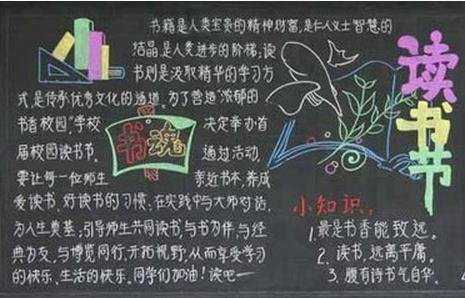 书籍是人类宝贵的精神财富,是仁人义士智慧的
结晶,是人类进步的阶梯;读
书则是汲取精华的学习方
式,是传承优秀文化的通道。为了营造“浓郁的
书香校园”,学校 决定举办首
届校园读书节。 通过活动,
要让每一位师生 亲近书本,养成
爱读书、好读书的习惯;在实践中与大师对话,
为人生奠基;引导师生共同读书,与书为伴,与经
典为友,与博览同行,开拓视野,从而享受学习
的快乐、生活的快乐。同学们加油!读吧—
书魂
读书节
小知识:
1.最是书香能致远。
2、读书,远离平庸。
3、腹有诗书气自华。